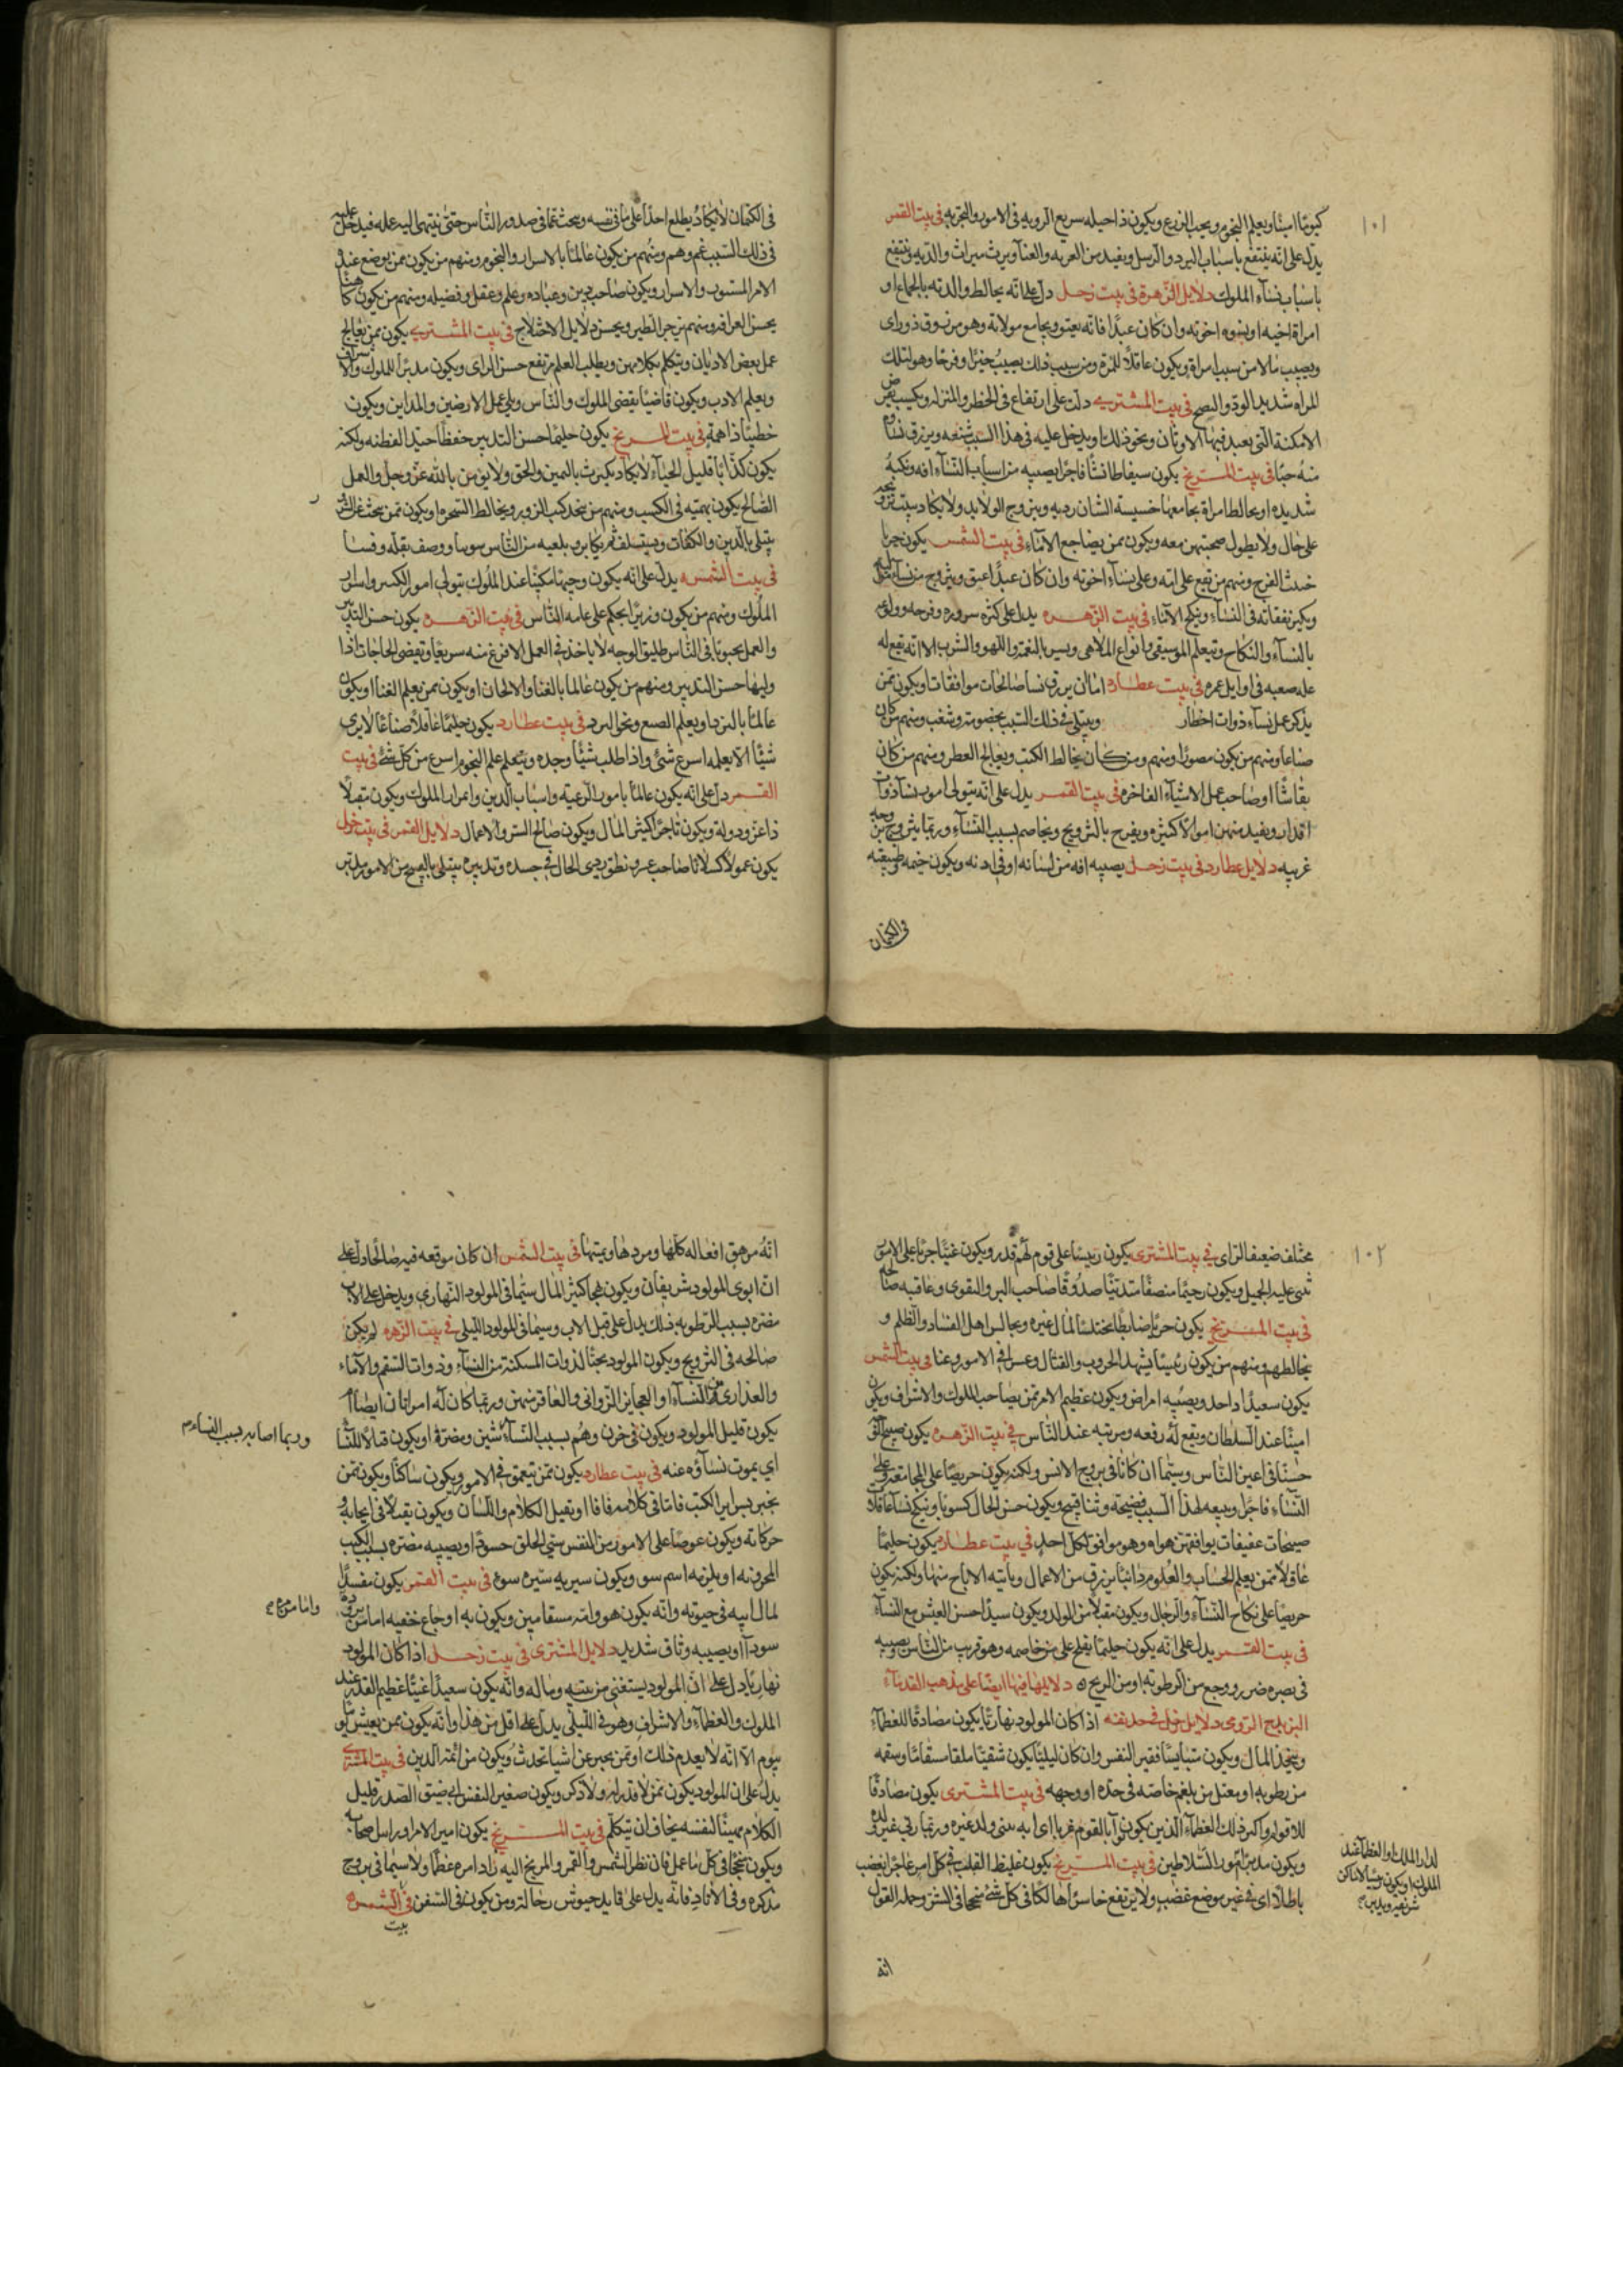 ١٠١
كيوما امينا ويعلم النجوم ويحب الزرع ويكون ذا حيله سريع الرويه في الامور والتجربه في بيت القمر
يدل على انه ينتفع باسباب البرد والرسل ويفيد من العربه والغنا ويرث ميراث والديه وينتفع
باسباب نساء الملوك دلايل الزهرة في بيت زحل دل على انه يخالط والدته بالجماع او
امراة اخيه او ينوه اخوته وان كان عبدا فانه يعتق ويجامع مولاته وهو من فوق ذو راى
ويصيب مالا من سبب امراة ويكون عاقلا للمرة ومن سبب ذلك يصيب خيرا وفرحا وهو لتلك
المراه شديد الود والنصح في بيت المشترى دلت على ارتفاع في الخطر والمنزله ويكسب بعض
الامكنة التى يعبد فيها الاوثان ونحو ذلك ويدخل عليه في هذا السبب شنعه ويرزق نساوه
منه حبا في بيت المريخ يكون سيفاطا نشا فاجرا يصيبه من اسباب النساء افه ونكبه
شديده او يخالط امراة يجامعها خسيسة الشان رديه ويتزوج الولايد ولا يكاد يثبت تزوجه
على حال ولا يطول صحبتهن معه ويكون ممن يضاجع الاماء في بيت الشمس يكون جريا
خبث الفرج ومنهم من يقع على امه وعلى نساء اخوته وان كان عبدا اعتق ويتزوج من نساء مواليه
ويكثر نفقاته في النساء وينكح الاماء في بيت الزهره يدل على كثره سروره وفرحه وولوعه
بالنساء والنكاح ويتعلم الموسيقى وانواع الملاهى ويسر بالنغمة واللهو والشرب الا انه يقع له
عله صعبه في اوايل عمره في بيت عطارد اما ان يرزق نسا صالحات موافقات او يكون ممن
يذكر عمل نساء ذوات اخطار ويبتلى في ذلك السبب بخصومة وشغب ومنهم من كان
صناعا ومنهم من يكون مصورا ومنهم ومن كان يخالط الكتب ويعالج العطر ومنهم من كان
نقاشا او صاحب عمل الاشياء الفاخره في بيت القمر يدل على انه يتولى امور نساء ذوات
اقدار ويفيد منهن اموالا كثيره ويفرح بالتزويج ويخاصم بسبب النساء وربما يتزوج من وجبه
غريبه دلايل عطارد في بيت زحل يصيبه افه من لسانه او في اذنه ويكون خيمه وطبيعته
في الكتمان
في الكتمان لا يكاد يطلع احدا على ما في نفسه ويبحث عما في صدور الناس حتى ينتهى اليه علمه فيدخل عليه
في ذلك السبب غم وهم ومنهم من يكون عالما بالاسرار والنجوم ومنهم من يكون ممن يوضع عنده
الامر المستور والاسرار ويكون صاحب دين وعباده وعلم وعقل وفضيله ومنهم من يكون كاهنا
يحسن العرافه ومنهم من يزجر الطير ويحسن دلايل الاختلاج في بيت المشترى يكون ممن يعالج
عمل بعض الاديان ويتكلم بكلامهن ويطلب العلم مرتفع حسن الراى ويكون مدبرا للملوك والاشراف
ويعلم الادب ويكون قاضيا يقضى الملوك والناس ويلى عمل الارضين والمداين ويكون
خطيبا ذا همة في بيت المريخ يكون حليما حسن التدبير حفظا جيد الفطنه ولكنه
يكون كذابا قليل الحياء لا يكاد يكترث باليمين والحق ولا يؤمن بالله عز وجل والعمل
الصالح يكون بهمته في الكسب ومنهم من يتخذ كتب الزور ويخالط السحره او يكون ممن يبحث عن الشر
يبتلى بالدين والكفالات ويستلف ثم يكابر ويلعنه من الناس سوسا ووصف بقله وفسا
في بيت الشمس يدل على انه يكون وجيها مكينا عند الملوك يتولى امور الكبر واسرار
الملوك ومنهم من يكون وزيرا يحكم على عامه الناس في بيت الزهره يكون حسن التدبير
والعمل محبوبا في الناس طليق الوجه لا ياخذ في العمل الا فرغ منه سريعا ويقضى الحاجات اذا
وليها حسن التدبير ومنهم من يكون عالما بالغنا والالحان او يكون ممن يعلم الغنا او يكون
عالما بالنرد او يعلم الصبع ونحو البرد في بيت عطارد يكون حليما عاقلا صناعا لا يرى
شيئا الا يعلمه اسرع شئ واذا طلب شيئا وجده ويتعلم علم النجوم اسرع من كل شئ في بيت
القمر دل على انه يكون عالما بامور الرعية واسباب الدين وامور الملوك ويكون مقبلا
ذا عز ودولة ويكون تاجرا كثير المال ويكون صالح الستر والاعمال دلايل القمر في بيت زحل
يكون عمولا كسلانا صاحب عسر ونطق ردى الحال في جسده وتدبيره يبتلى بالقبيح من الامور مدبر
١٠٢
مختلف ضعيف الراى في بيت المشترى يكون رئيسا على قوم لهم قدر ويكون غنيا جريا على الامور
يثنى عليه الجميل ويكون رحيما منصفا متدينا صدوقا صاحب البر والتقوى وعاقبه صالحه
في بيت المريخ يكون جريا ضابطا يختلس المال غيره ويجالس اهل الفساد والظلم و
يخالطهم ومنهم من يكون رئيسا يشهد الحروب والقتال وعسرا في الامور وعنا في بيت الشمس
يكون سعيدا واجد ويصيبه امراض ويكون عظيم الامر ممن يصاحب الملوك والاشراف ويكون
امينا عند السلطان ويقع له رفعه ومرتبه عند الناس في بيت الزهره يكون صبيح الوجه
حسنا في اعين الناس وسيما ان كانا في بروج الانس ولكنه يكون حريصا على المجامعه وعلى
النساء فاجرا ويتبعه لهذا السبب فضيحة وثنا قبيح ويكون حسن الحال كسوبا وينكح نساء عاقلات
صبيحات عفيفات يوافقن هواه وهو موافق لكل احد في بيت عطارد يكون حليما
عاقلا ممن يعلم الحساب والعلوم دائبا يرزق من الاعمال وياتيه الارباح منها ولكنه يكون
حريصا على نكاح النساء والرجال ويكون مقبلا من الولد ويكون سيدا حسن العشر مع النساء
في بيت القمر يدل على انه يكون حليما يفلح على من خاصمه وهو قريب من الناس يصيبه
في بصره ضرر ووجع من الرطوبه او من الريح دلايلها فيها ايضا على مذهب القدماء
البزيدج الرومى دلايل زحل في حد نفسه اذا كان المولود نهاريا يكون مصادقا للعظماء
ويتخذ المال ويكون متبايسا فقير النفس وان كان ليليا يكون شقيا ملقا مسقاما وسقمه
من رطوبه او معتل من بلغم خاصه في حده او وجهه في بيت المشترى يكون مصادقا
للاقويا واكبر ذلك العظماء الذين يكونوا بالقوم غربا اى انه يتبنى ولد غيره وربما ربى غير ولده
ويكون مدبر امور السلاطين في بيت المريخ يكون غليظ القلب في كل امر عاجزا يغضب
باطلا اى في غير موضع غضب ولا يرتفع خاسرا هالكا في كل شئ منجحا في الشر وجملة القول
لدار الملك او العظماء عند
الملوك او يكون رئيسا لاماكن
شريفه ويدبر
انه
انه مرهق افعاله كلها ومردها ومبتها في بيت الشمس ان كان موقعه فيه صالحا دل على
ان ابوى المولود شريفان ويكون لهما كثير المال سيما في المولود النهارى ويدخل على الاب
مضره بسبب الرطوبه ذلك يدل على قبل الاب وسيما في المولود الليلى في بيت الزهره لم يكن
صالحه في التزويج ويكون المولود محبا لذوات المسكنة من النساء وذوات السقم والاماء
والعذارى من النساء او العجايز الزوانى والعاقر منهن وربما كان له امراتان ايضا او
يكون قليل المولود ويكون في حزن وهم بسبب النساء شين ومضرة او يكون قتالا للنساء
اى يموت نساؤه عنه في بيت عطارد يكون ممن يتعمق في الامور ويكون ساكتا ويكون ممن
يخبر بسراير الكتب فاتا في كلامه فافا او ثقيل الكلام واللسان ويكون ثقيلا في ايجابه و
حركاته ويكون عوصا على الامور من النفس سئ الخلق حسودا ويصيبه مضره بسبب الكتب
المحرفه او يلزمه اسم سو ويكون سيرته سيره سوء في بيت القمر يكون مفسدا
لمال ابيه في حيوته وانه يكون هو وامه مسقامين ويكون به اوجاع خفيه اما من مره
سودا او يصيبه وثاق شديد دلايل المشترى في بيت زحل اذا كان المولود
نهاريا دل على ان المولود يستغنى من بيته وماله وانه يكون سعيدا غنيا عظيم القدر عند
الملوك والعظماء والاشراف وهو في الليلى يدل على اقل من هذا وانه يكون ممن يعيش يوم
بيوم الا انه لا يعدم ذلك او ممن يخبر عن اشيا تحدث ويكون من ائمة الدين في بيت المشترى
يدل على ان المولود يكون ممن لا قدر له ولا ذكر ويكون صغير النفس اى ضيق الصدر قليل
الكلام مهينا لنفسه يخاف ان يتكلم في بيت المريخ يكون امير الامر او راس صحابه
ويكون منجحا في كل ما عمل فان نظر الشمس والقمر والمريخ اليه زاد امره عظما ولا سيما في بروج
مذكره وفي الاوتاد فانه يدل على قايد جيوش رحاله ومن يكون في السفن في الشمس
بيت
وربما اصابه بسبب النساء
واما من مره